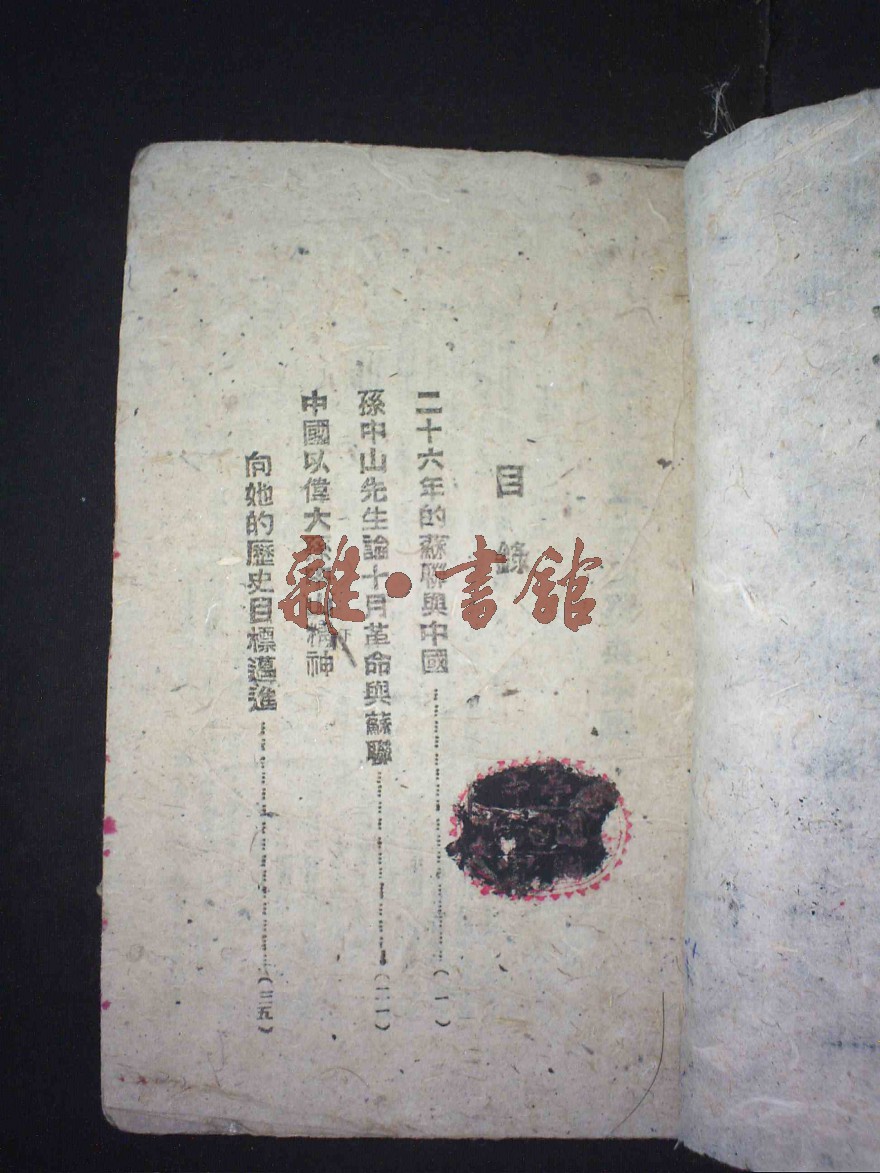 目錄
二十六年的蘇聯與中國……(一)
孫中山先生論十月革命與蘇聯……(二一)
中國以偉大 精神
向她的歷史目標邁進……(三五)
雜·書館